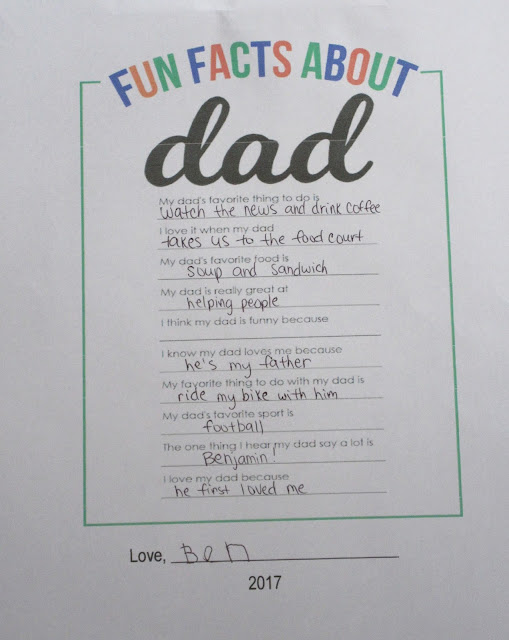 FUN FACTS ABOUT
dad
My dad's favorite thing to do is
watch the news and drink coffee
I love it when my dad
takes us to the food court
My dad's favorite food is
soup and sandwich
My dad is really great at
helping people
I think my dad is funny because
I know my dad loves me because
he's my father
My favorite thing to do with my dad is
ride my bike with him
My dad's favorite sport is
football
The one thing I hear my dad say a lot is
Benjamin!
I love my dad because
he first loved me
Love, Ben
2017